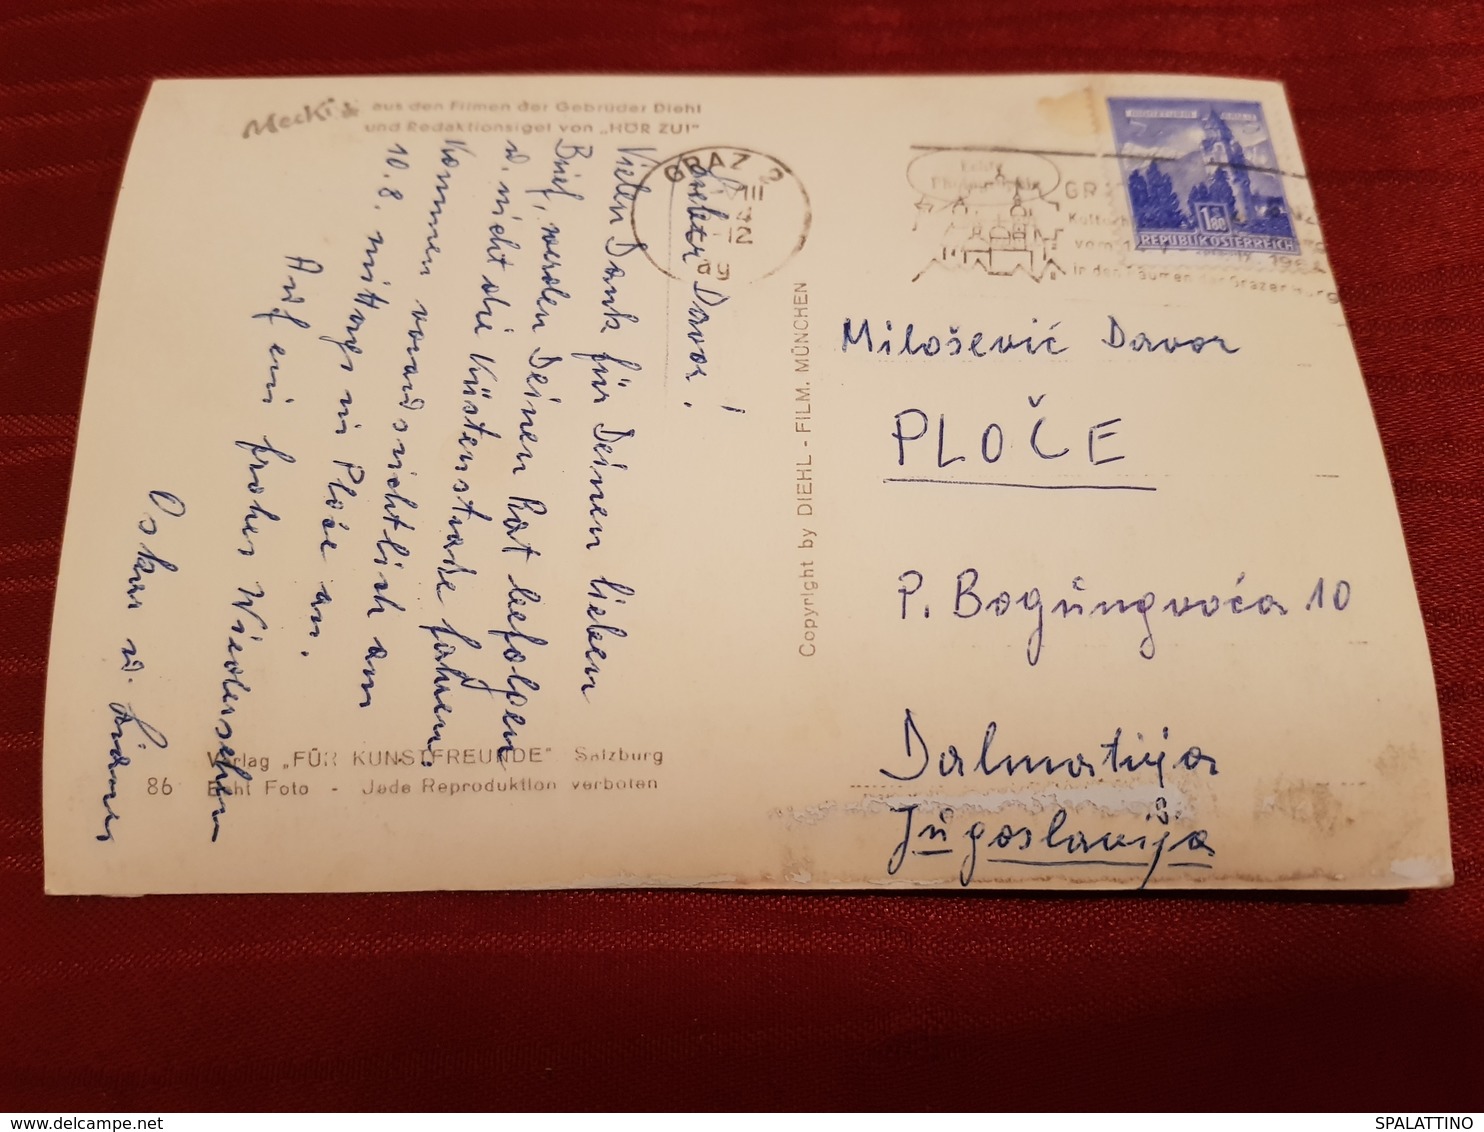 Mecki
aus den Filmen der Gebrüder Diehl
und Redaktionsigel von „HÖR ZU!"
Lieber Davor!
Vielen Dank für Deinen lieben
Brief, werden Deinen Rat befolgen
u. nicht die Küstenstraße fahren.
Kommen voraussichtlich am
10. 8. mittags in Ploče an.
Auf ein frohes Wiedersehen
Oskar u.
Verlag „FÜR KUNSTFREUNDE" Salzburg
86 Echt Foto - Jede Reproduktion verboten
Copyright by DIEHL - FILM, MÜNCHEN
GRAZ 2
VIII
12
ag
GRAZ
vom
in den Räumen der Grazer Burg
1,80
REPUBLIK ÖSTERREICH
Milošević Davor
PLOČE
P. 10
Dalmatija
Jugoslavija
SPALATTINO
www.delcampe.net